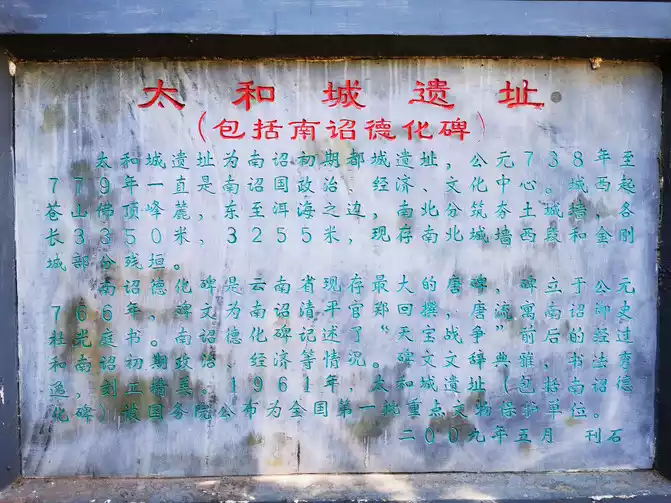 太和城遗址
（包括南诏德化碑）
太和城遗址为南诏初期都城遗址，公元738年至
779年一直是南诏国政治、经济、文化中心。城西起
苍山佛顶峰麓，东至洱海之边，南北分筑夯土城墙，各
长3350米，3255米，现存南北城墙西段和金刚
城部份残垣。
南诏德化碑是云南省现存最大的唐碑，碑立于公元
766年。碑文为南诏清平官郑回撰，唐流寓南诏御史
杜光庭书。南诏德化碑记述了“天宝战争”前后的经过
和南诏初期政治、经济等情况。碑文文辞典雅，书法秀
逸，刻工精美。1961年 太和城遗址（包括南诏德
化碑 被国务院公布为全国第一批重点文物保护单位。
二00九年五月 刊石